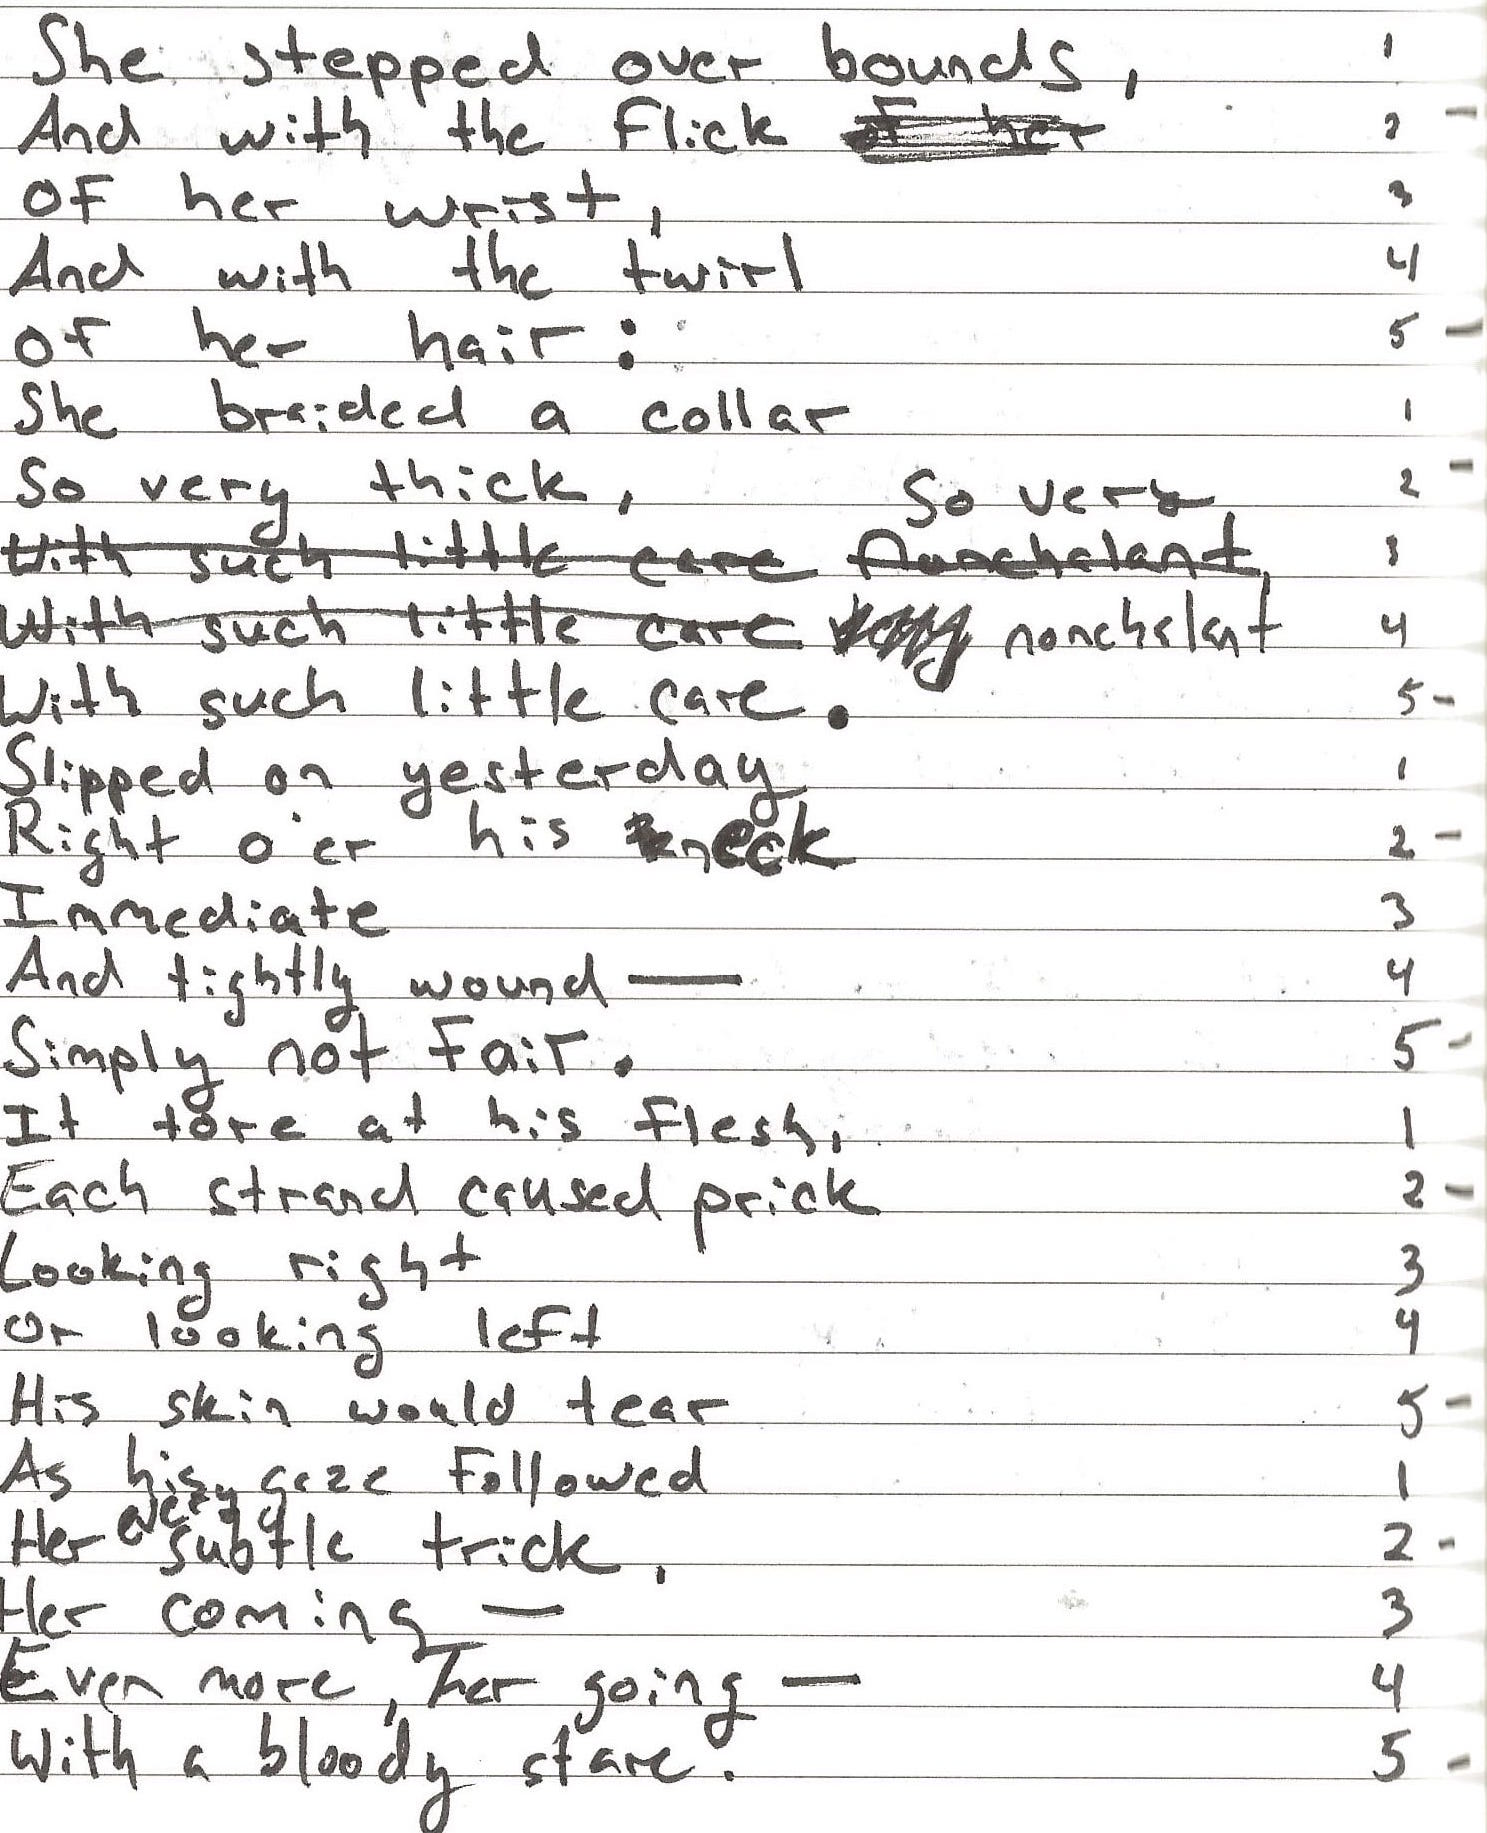 She stepped over bounds, 1
And with the flick of her 2 -
of her wrist, 3
And with the twirl 4
of her hair: 5 -
She braided a collar 1
So very thick, So very 2 -
With such little care Nonchalant, 3
With such little care very nonchalant 4
With such little care. 5 -
Slipped on yesterday 1
Right o'er his neck 2 -
Immediate 3
And tightly wound — 4
Simply not fair. 5 -
It tore at his flesh, 1
Each strand caused prick 2 -
Looking right 3
Or looking left 4
His skin would tear 5 -
As his gaze followed 1
every
Her subtle trick, 2 -
Her coming — 3
Even more, her going — 4
With a bloody stare. 5 -